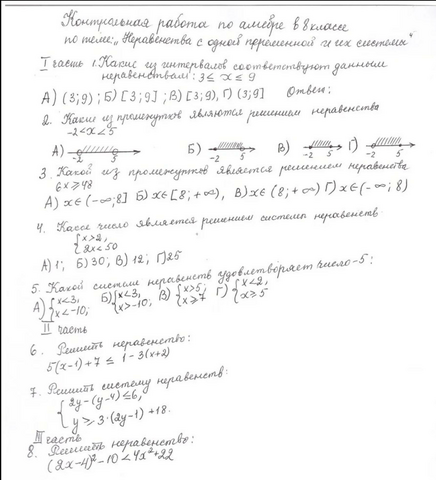 Контрольная работа по алгебре в 8 классе
по теме: „Неравенства с одной переменной и их системы"
I часть 1. Какие из интервалов соответствуют данным
неравенствам: 3 ≤ x ≤ 9
А) (3;9); Б) [3;9]; В) [3;9), Г) (3;9] Ответ:
2. Какие из промежутков являются решением неравенства
-2<x<5
А) -2 5 Б) -2 5 В) -2 5 Г) -2 5
3. Какой из промежутков является решением неравенства
6x ≥ 48
А) x∈(-∞;8] Б) x∈[8;+∞), В) x∈(8;+∞) Г) x∈(-∞;8)
4. Какое число является решением системы неравенств
{x>2,
2x<50
А) 1; Б) 30; В) 12; Г) 25
5. Какой системе неравенств удовлетворяет число -5:
А) {x<3, x<-10; Б) {x<3, x>-10; В) {x>5; x≥7 Г) {x<2, x≥5
II часть
6. Решить неравенство:
5(x-1)+7 ≤ 1-3(x+2)
7. Решить систему неравенств:
{2y-(y-4)≤6,
y≥3·(2y-1)+18.
III часть
8. Решить неравенство:
(2x-4)²-10<4x²+22